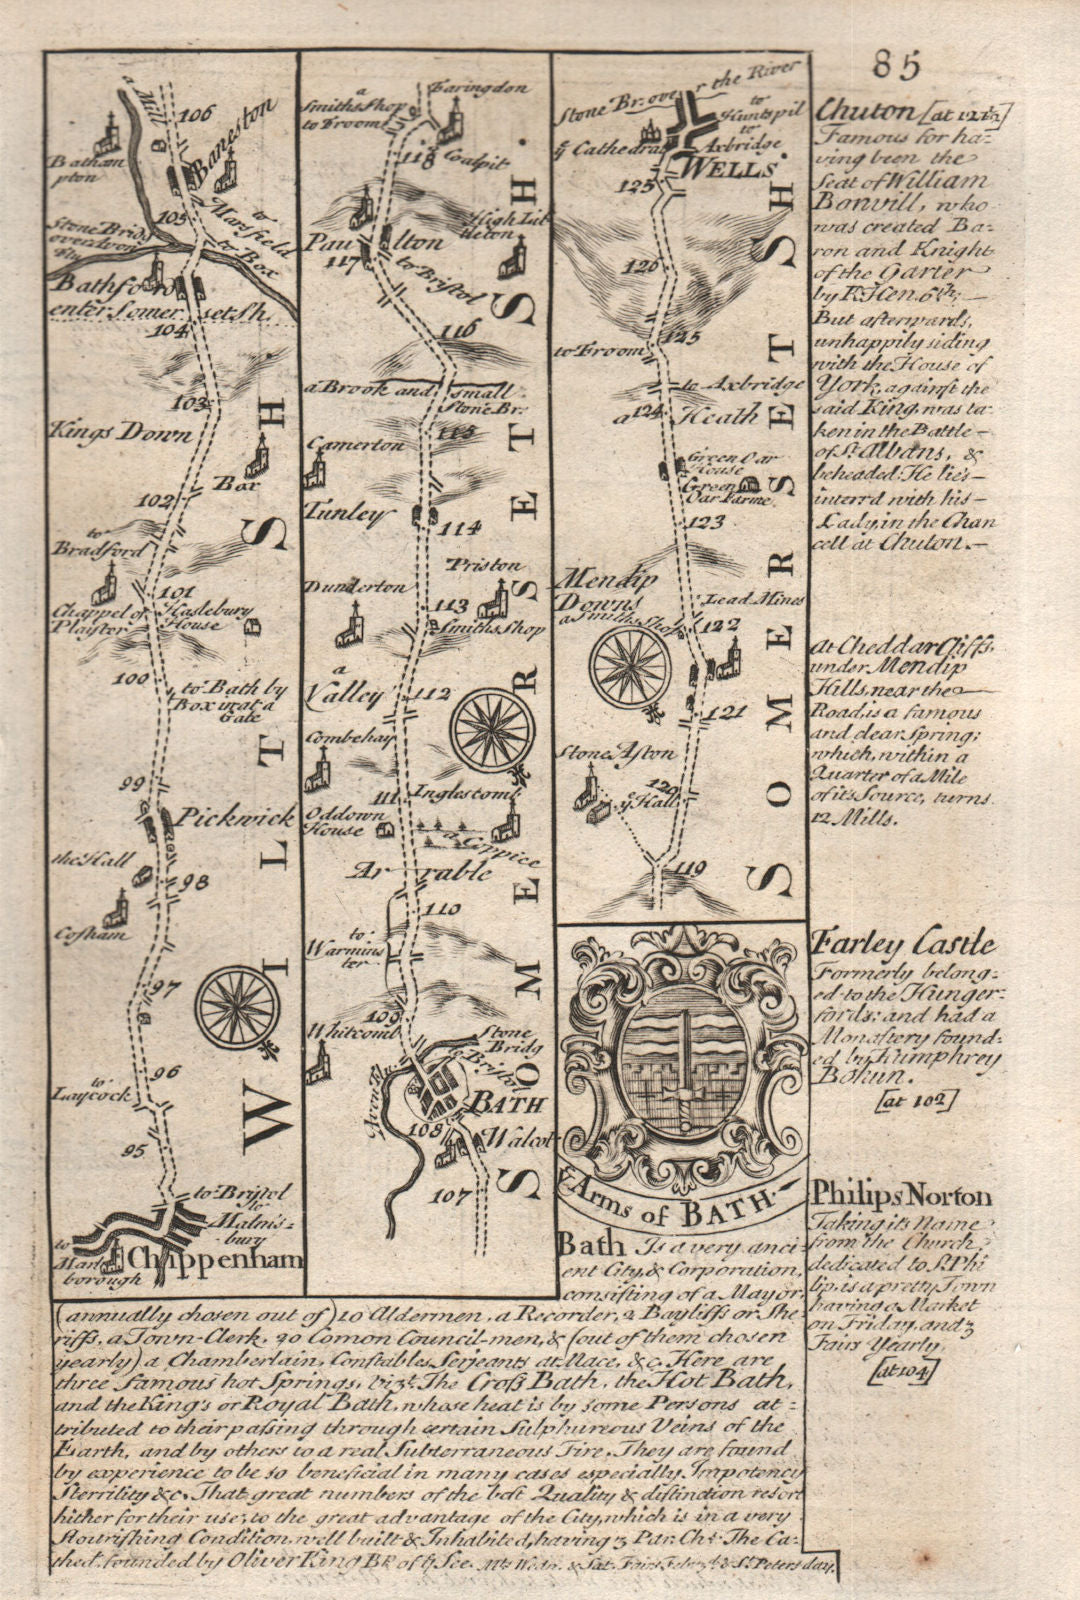 85
a Mill
106
Baneston
Batham
pton
105
to
Marsfield
to Box
Stone Bridg
over
Bathford
enter Somersetsh.
104
103
Kings Down
Box
102
to
Bradford
101
Chappel of
Plaister
Haslebury
House
100
to Bath by
Box over a
Gate
99
Pickwick
the Hall
98
Cosham
97
96
to
Laycock
95
to Bristol
to
Malms=
bury
to
Marl
borough
Chippenham
WILTSH
a
Smiths Shop
to Froom
Faringdon
118
Coalpit
High Lit
tleton
Paulton
117
to Bristol
116
a Brook and small
Stone Br:
115
Camerton
Tunley
114
Priston
Dunderton
113
Smiths Shop
a
Valley
112
Combehay
111
Inglescomb
Oddown
House
a Coppice
Arrable
110
to
Warmins
ter
109
Whitcomb
Stone
Bridg
to Bristol
Avon Flu.
BATH
108
Walcot
107
SOMERSETSH.
Stone Br: over the River
to
Huntspil
to
Axbridge
ye Cathedral
WELLS
125
126
125
to Froom
to Axbridge
a 124 Heath
Green Oar
House
Green
Oar Farme
123
Mendip
Downs
Lead Mines
a Smiths Shop
122
121
Stone Aston
120
ye Hall
119
SOMERSETSH.
ye Arms of BATH.
Chuton [at 121½]
Famous for ha=
ving been the
Seat of William
Bonvill, who
was created Ba=
ron and Knight
of the Garter
by K. Hen. 6th.—
But afterwards,
unhappily siding
with the House of
York, against the
said King, was ta=
ken in the Battle—
of St. Albans, &
beheaded. He lies—
interr'd with his—
Lady, in the Chan
cell at Chuton.—
At Cheddar Cliffs,
under Mendip
Hills, near the—
Road, is a famous
and clear Spring;
which, within a
Quarter of a Mile
of its Source, turns
12 Mills.
Farley Castle
Formerly belong=
ed to the Hunger=
fords: and had a
Monastery found=
ed by Humphrey
Bohun.
[at 102]
Philips Norton
Taking its Name
from the Church,
dedicated to St. Phi
lip, is a pretty Town
having a Market
on Friday, and 3
Fairs Yearly.
[at 104]
Bath Is a very anci=
ent City, & Corporation,
consisting of a Mayor,
(annually chosen out of) 10 Aldermen, a Recorder, 2 Bayliffs or She
riffs, a Town-Clerk, 20 Comon Council-men, & (out of them chosen
yearly) a Chamberlain, Constables, Serjeants at Mace, &c. Here are
three famous hot Springs, vizt. The Cross Bath, the Hot Bath,
and the King's or Royal Bath, whose heat is by some Persons at=
tributed to their passing through certain Sulphureous Veins of the
Earth, and by others to a real Subterraneous Fire. They are found
by experience to be so beneficial in many cases especially Impotency
Sterrility &c. That great numbers of the best Quality & distinction resort
hither for their use, to the great advantage of the City, which is in a very
flourishing Condition, well built & Inhabited, having 3 Par. Chs. The Ca=
thed. founded by Oliver King Bp. of ye See. Mts. Wedn. & Sat. Fairs Feb. 3d. & St. Peters day.